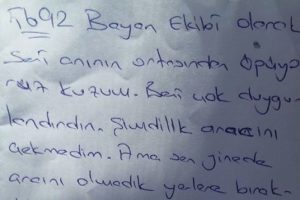 İb92 Bayan Ekibi olarak
Seni anının ortasından öpüyo
ruz kuzum. Bizi çok duygu
landırdın. Şimdilik aracını
çekmedim. Ama sen yinede
aracını olmadık yerlere bırak-